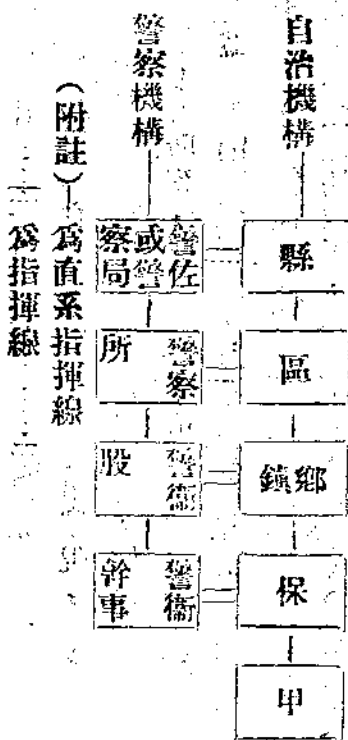 自治機構
縣
區
鄉鎮
保
甲
警察機構
警佐
或警
察局
警察
所
警衞
股
警衞
幹事
(附註)— 爲直系指揮線
爲指揮線